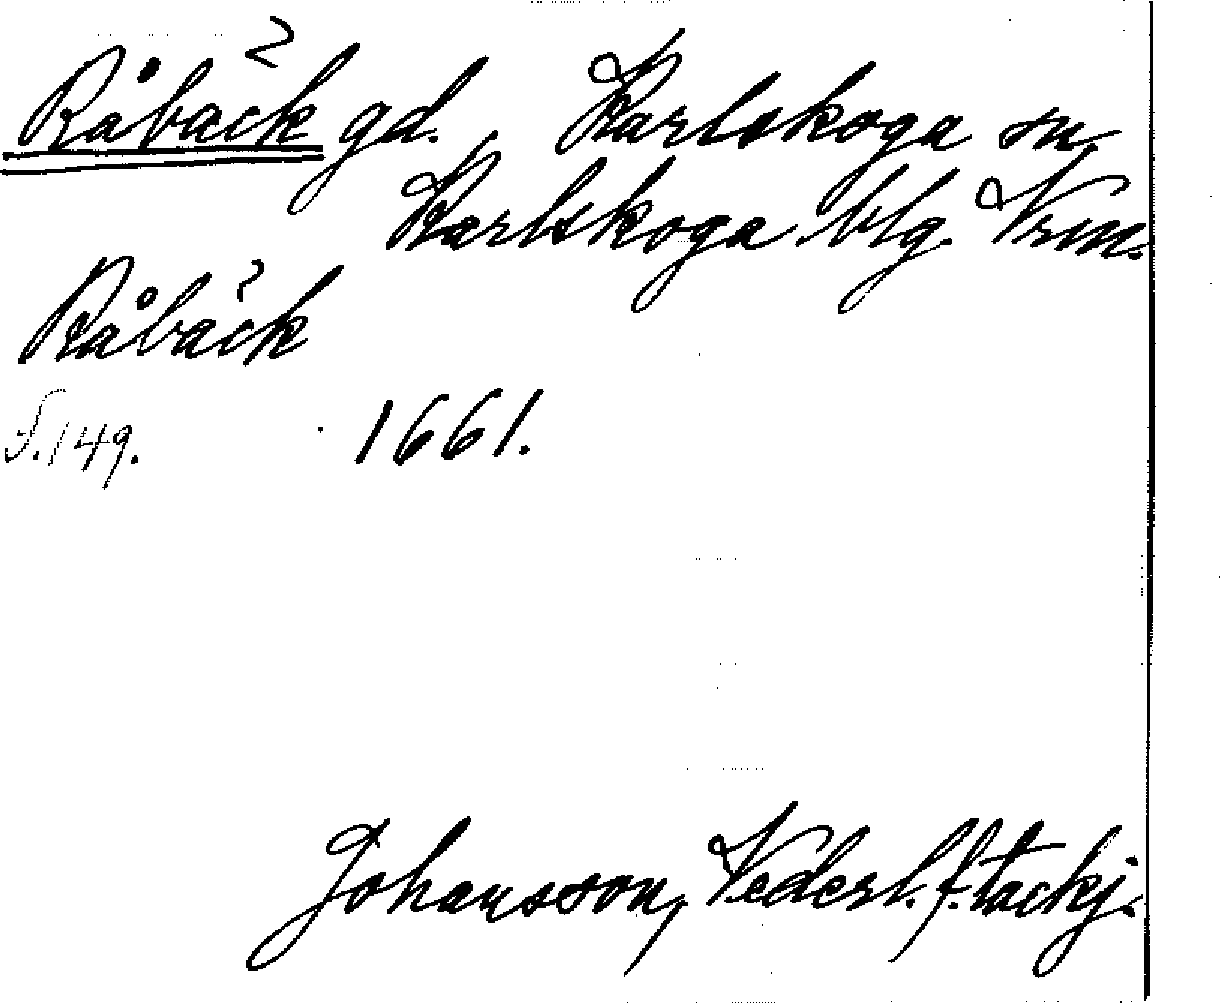 Råbäck gd. Karlskoga sn
Karlskoga blg. Vrm.
Råbäck
S.149. 1661.
Johansson, Vederl. f. tackj.